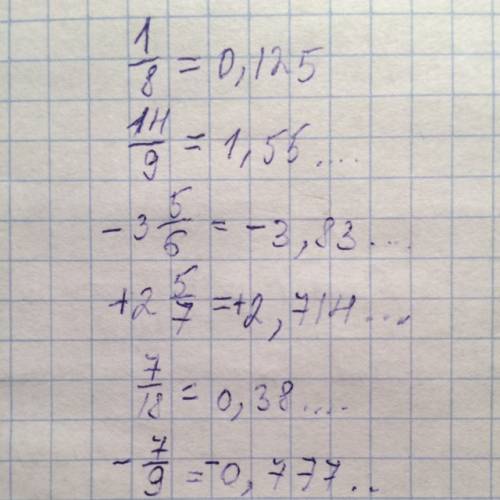 1/8 = 0,125
14/9 = 1,55....
-3 5/6 = -3,83...
+2 5/7 = +2,714...
7/18 = 0,38....
-7/9 = -0,777..